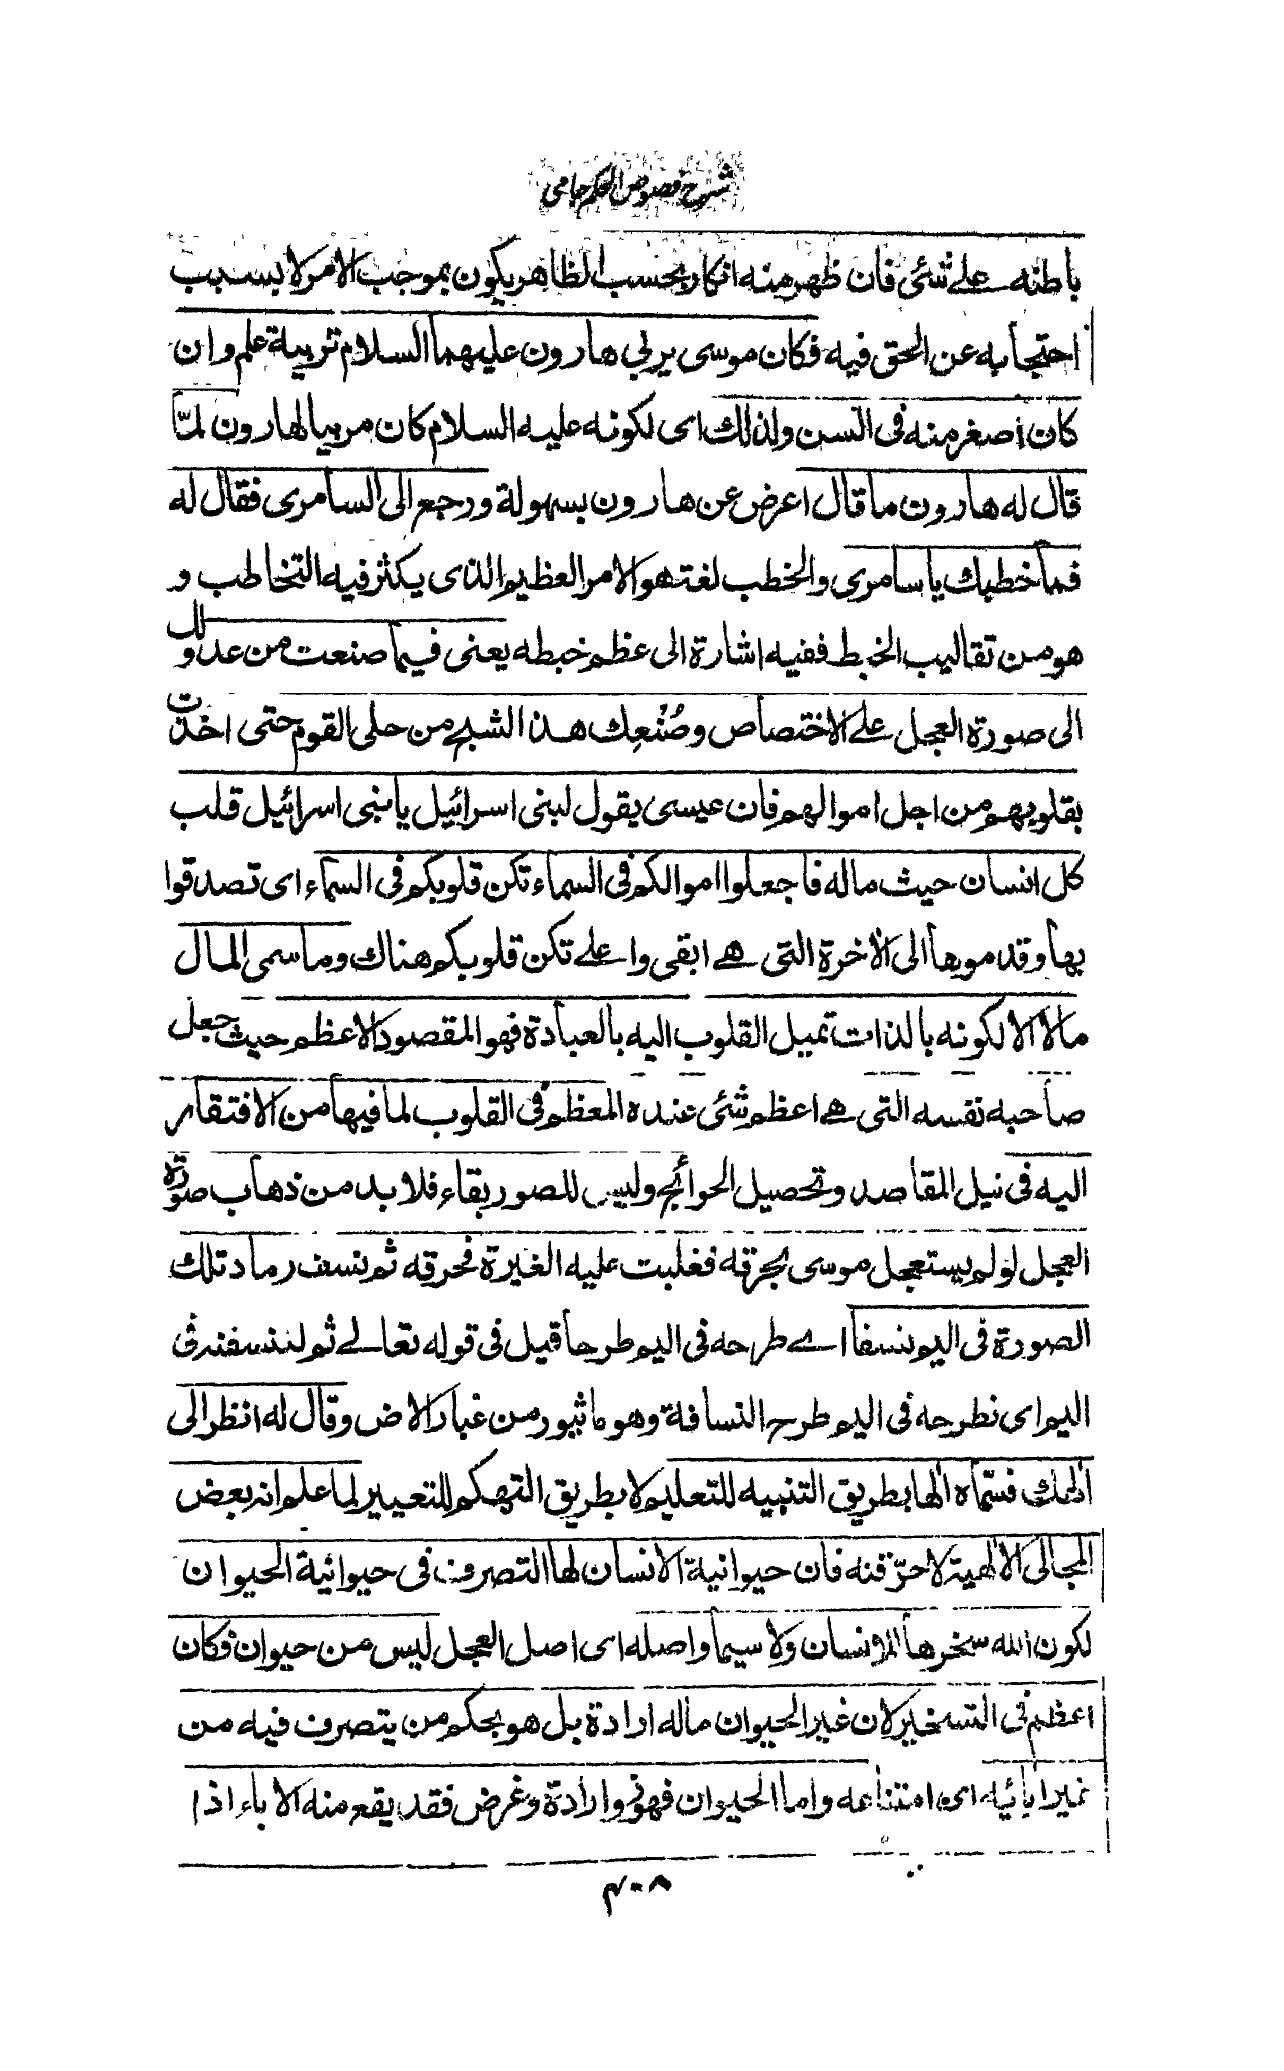 شرح فصوص الحكم جامى
باطنه على شئ فان ظهر منه انكار بحسب الظاهر يكون بموجب الامر لا بسبب
احتجابه عن الحق فيه فكان موسى يربى هارون عليهما السلام تربية علم وان
كان اصغر منه فى السن ولذلك اى لكونه عليه السلام كان مربيا لهارون لمّا
قال له هارون ما قال اعرض عن هارون بسهولة ورجع الى السامرى فقال له
فما خطبك يا سامرى والخطب لغته هو الامر العظيم الذى يكثر فيه التخاطب و
هو من تقاليب الخبط ففيه اشارة الى عظم خبطه يعنى فيما صنعت من عدولك
الى صورة العجل على الاختصاص وصُنْعِك هذا الشبح من حلى القوم حتى اخذت
بقلوبهم من اجل اموالهم فان عيسى يقول لبنى اسرائيل يا بنى اسرائيل قلب
كل انسان حيث ماله فاجعلوا اموالكم فى السماء تكن قلوبكم فى السماء اى تصدقوا
بها وقدموها الى الآخرة التى هے ابقى واعلے تكن قلوبكم هناك وما سمى المال
مالا الا لكونه بالذات تميل القلوب اليه بالعبادة فهو المقصود الاعظم حيث جعل
صاحبه نفسه التى هے اعظم شئ عنده المعظم فى القلوب لما فيها من الافتقار
اليه فى نيل المقاصد وتحصيل الحوائج وليس للصور بقاء فلا بد من ذهاب صورة
العجل لو لم يستعجل موسى بحرقه فغلبت عليه الغيرة فحرقه ثم نسف رماد تلك
الصورة فى اليم نسفا اے طرحه فى اليم طرحا قيل فى قوله تعالے ثم لننسفنه فى
اليم اى نطرحه فى اليم طرح النسافة وهو ما ثيور من غبار الارض وقال له انظر الى
الهك فسمّاه الها بطريق التنبيه للتعليم لا بطريق التهكم للتعيير لما علم انه بعض
المجالى الالهية لاحرّقنه فان حيوانية الانسان لها التصرف فى حيوانية الحيوان
لكون الله سخرها للانسان ولا سيما واصله اى اصل العجل ليس من حيوان فكان
اعظم فى التسخير لان غير الحيوان ماله ارادة بل هو بحكم من يتصرف فيه من
غير ابائيه اى امتناعه واما الحيوان فهو ذو ارادة وغرض فقد يقع منه الاباء اذا
۴۰۸